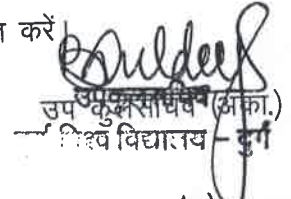 करें
Kuldeep
उपकुलसचिव
उप कुलसचिव (अका.)
विश्व विद्यालय – दुर्ग